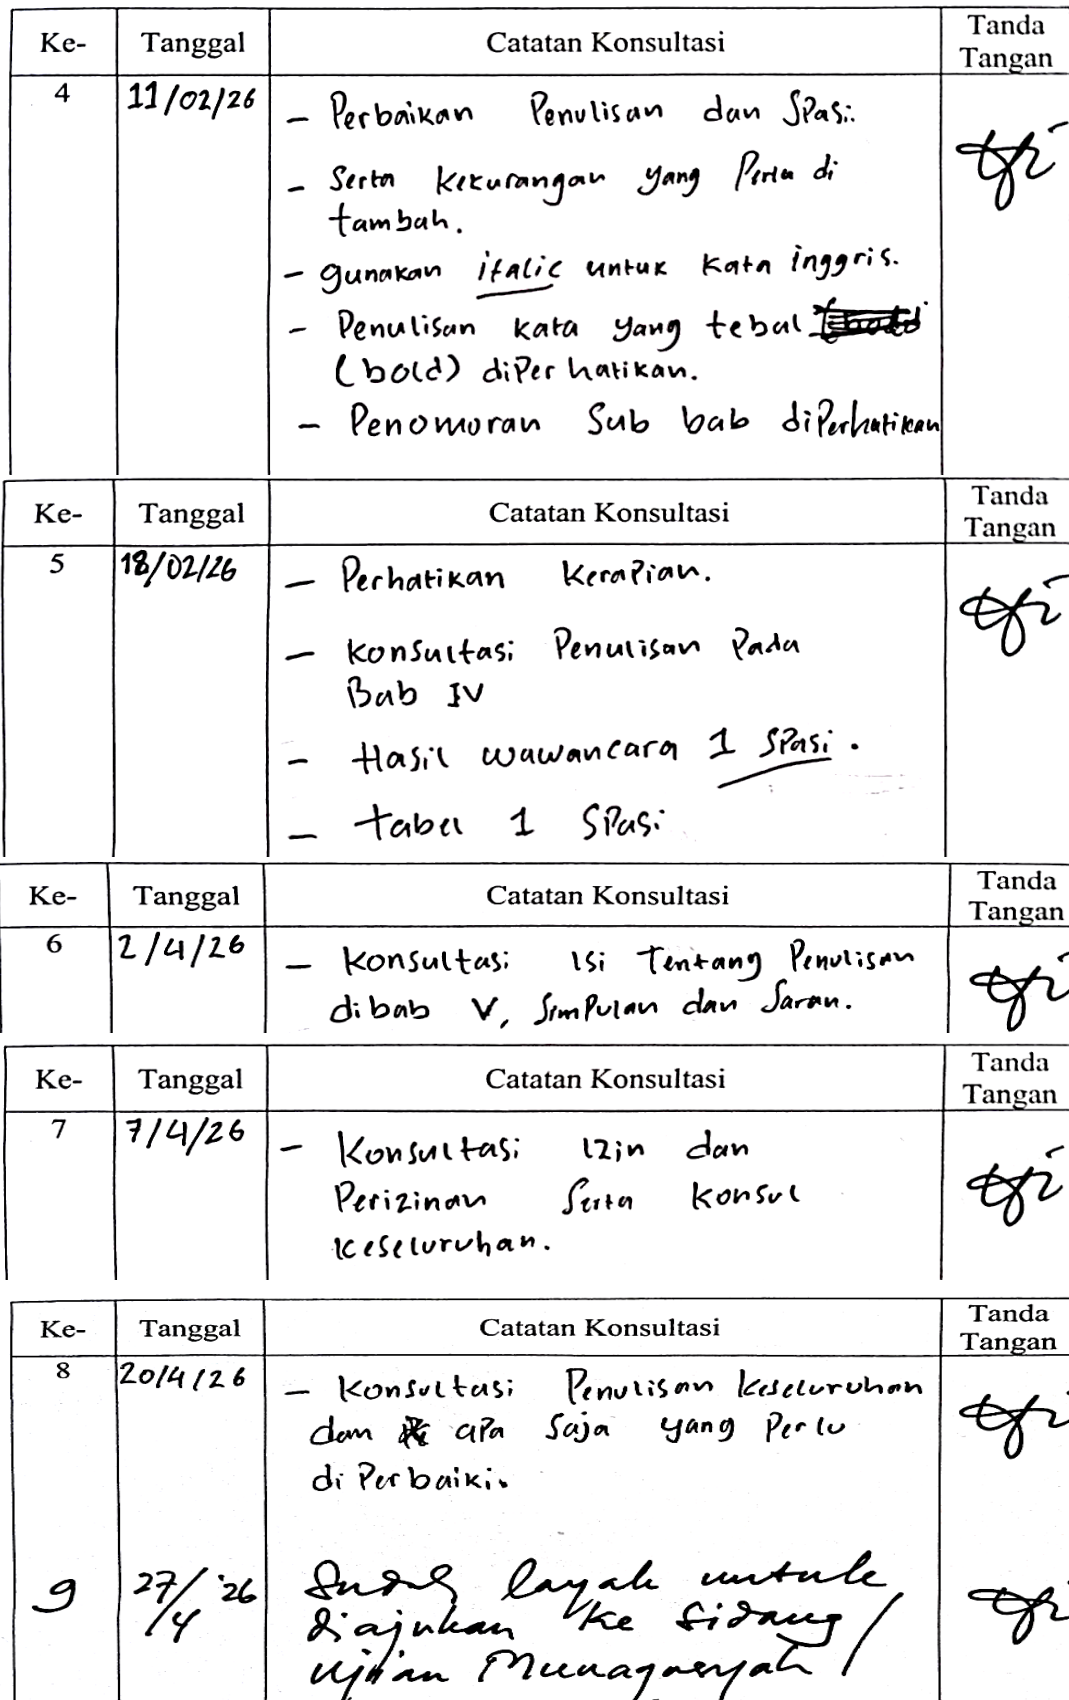 Ke- Tanggal Catatan Konsultasi Tanda Tangan
4 11/02/26
- Perbaikan Penulisan dan Spasi.
- Serta kekurangan yang Perlu di
tambah.
- gunakan italic untuk kata inggris.
- Penulisan kata yang tebal
(bold) diPerhatikan.
- Penomoran Sub bab diPerhatikan
Ke- Tanggal Catatan Konsultasi Tanda Tangan
5 18/02/26
- Perhatikan KeraPian.
- Konsultasi Penulisan Pada
Bab IV
- Hasil wawancara 1 SPasi.
- tabel 1 SPasi
Ke- Tanggal Catatan Konsultasi Tanda Tangan
6 2/4/26
- Konsultasi isi Tentang Penulisan
dibab V, SimPulan dan Saran.
Ke- Tanggal Catatan Konsultasi Tanda Tangan
7 7/4/26
- Konsultasi izin dan
Perizinan Serta Konsul
keseluruhan.
Ke- Tanggal Catatan Konsultasi Tanda Tangan
8 20/4/26
- Konsultasi Penulisan keseluruhan
dan apa Saja yang Perlu
diPerbaiki.
9 27/4 '26
Sudah layak untuk
diajukan ke Sidang /
ujian Munaqasyah